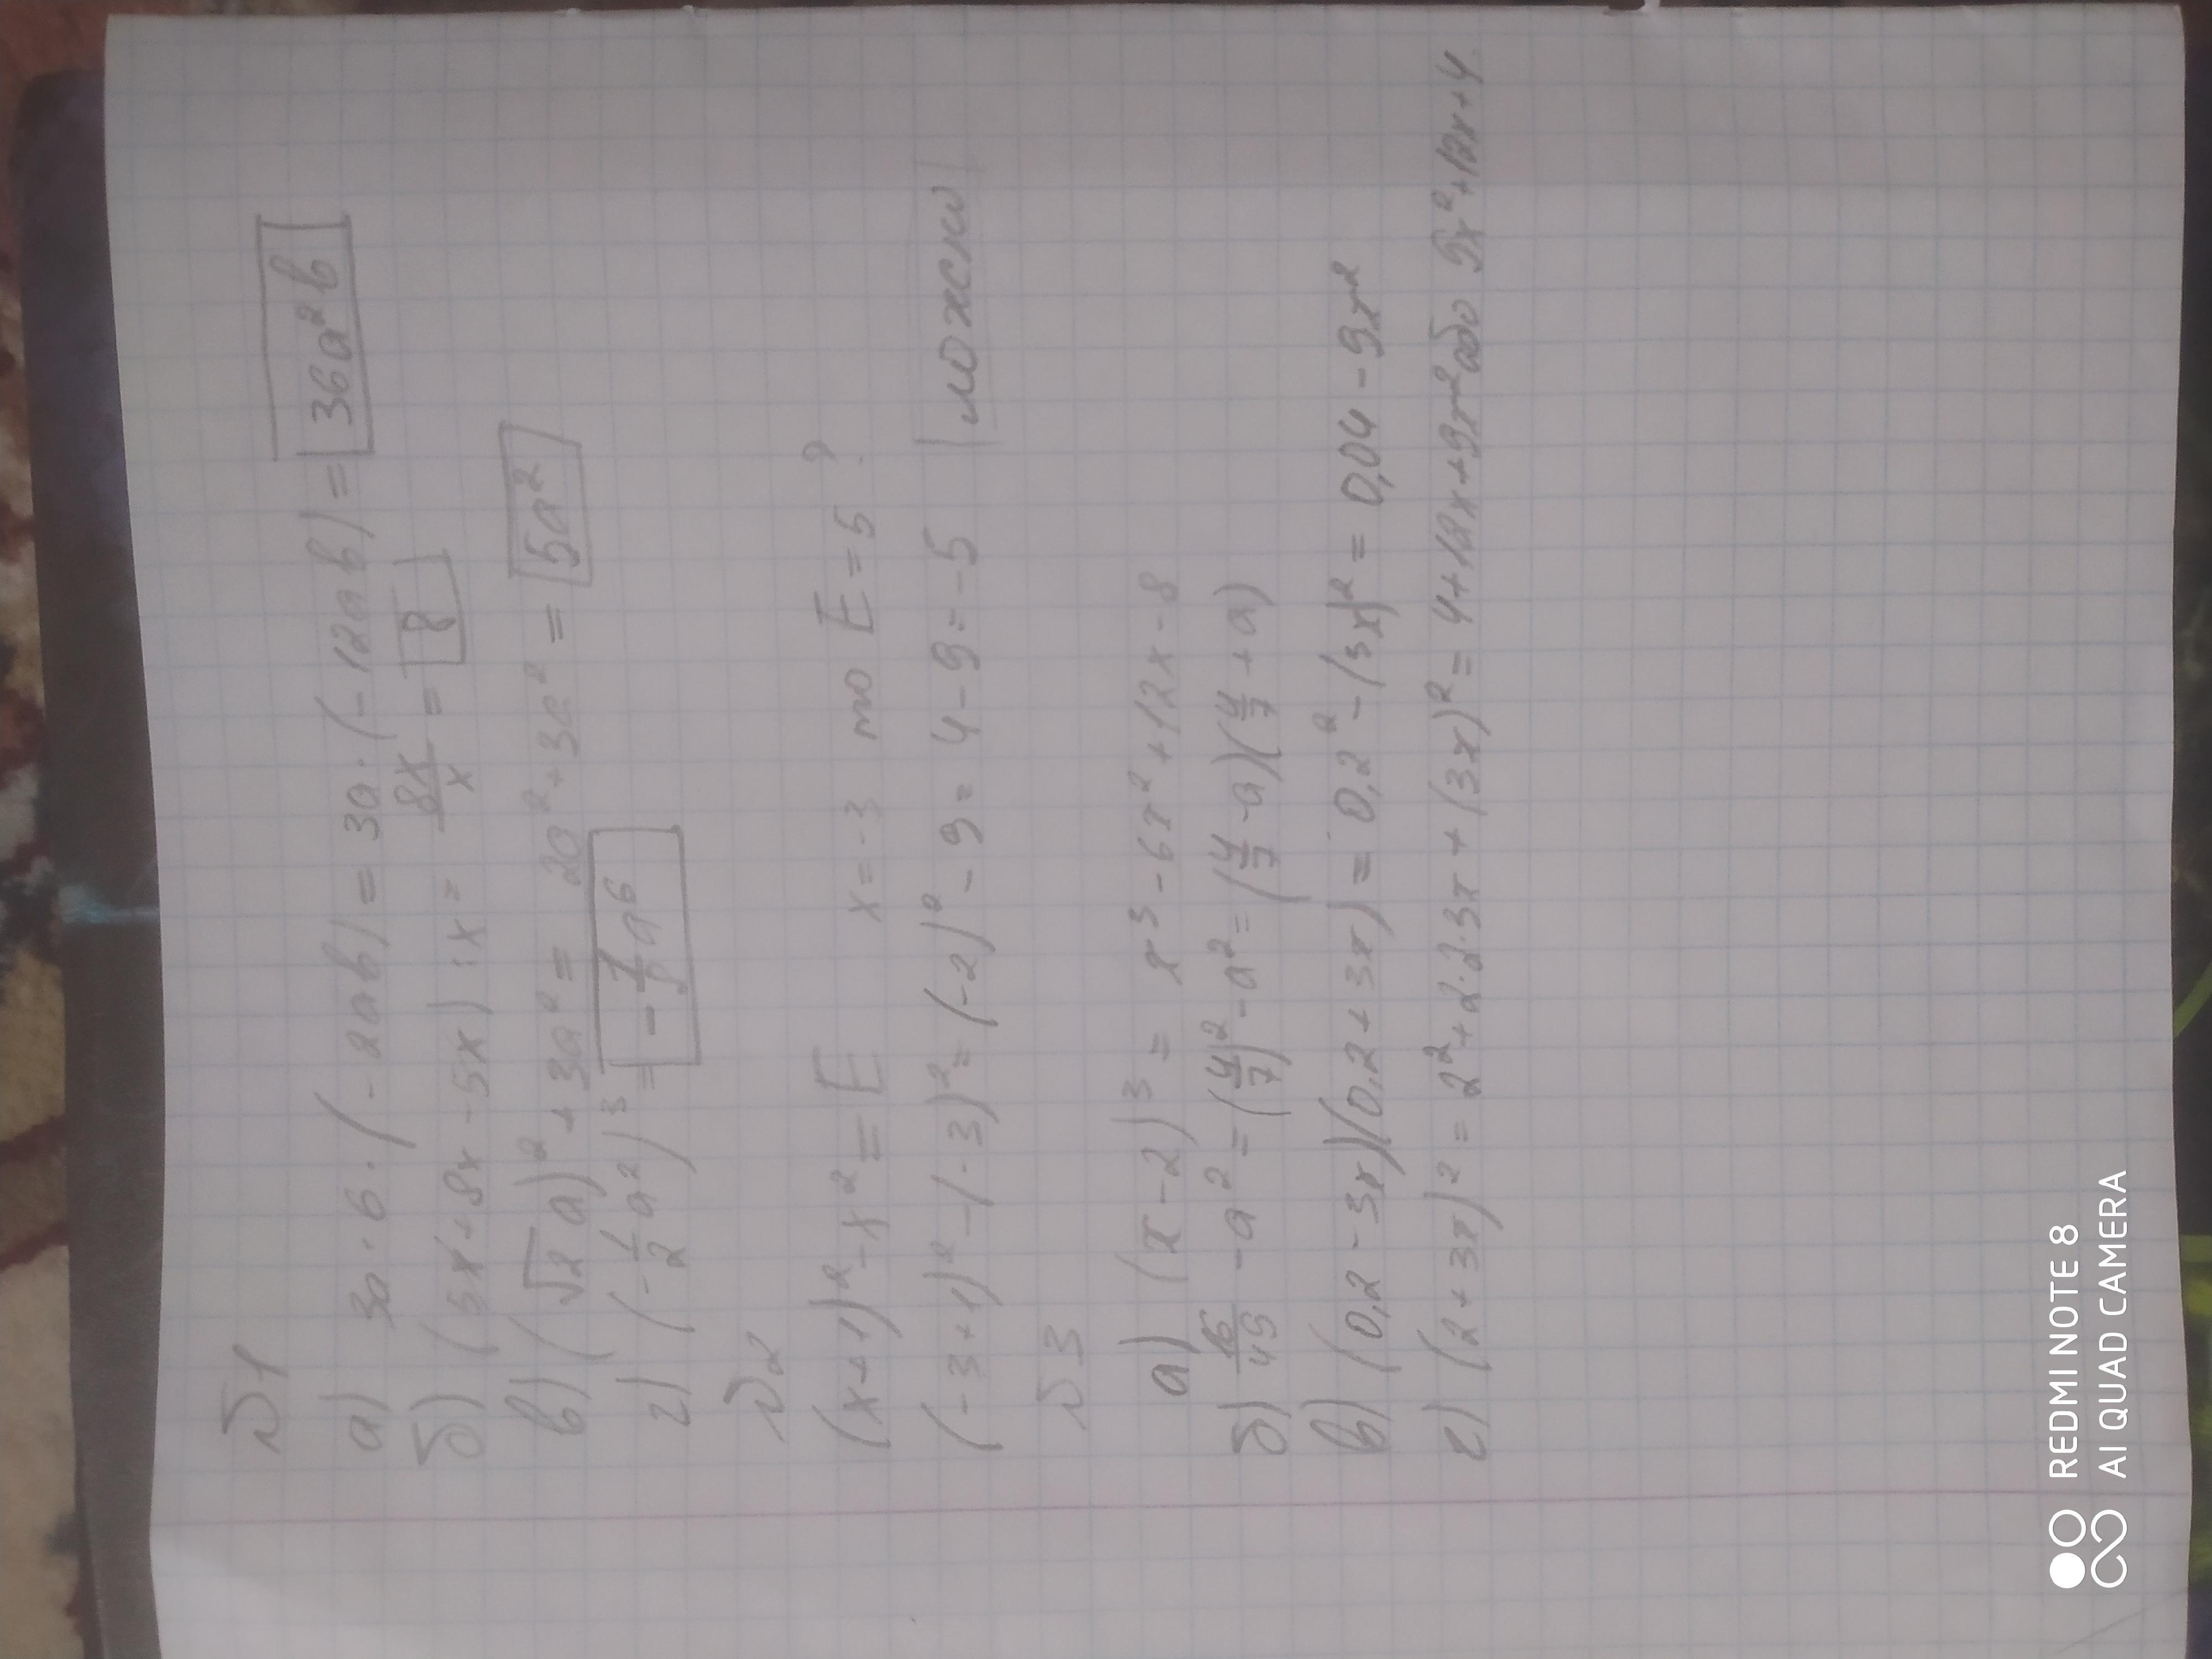 №1
а) 3a · 6 · (-2ab) = 3a · (-12ab) = 36a²b
б) (5x + 8x - 5x) : x = 8x/x = 8
в) (√2 a)² + 3a² = 2a² + 3a² = 5a²
г) (-1/2 a²)³ = -1/8 a⁶
№2
(x+1)² - x² = E x = -3 то E = 5 ?
(-3+1)² - (-3)² = (-2)² - 9 = 4 - 9 = -5 ложно
№3
а) (x - 2)³ = x³ - 6x² + 12x - 8
б) 16/49 - a² = (4/7)² - a² = (4/7 - a)(4/7 + a)
в) (0,2 - 3x)(0,2 + 3x) = 0,2² - (3x)² = 0,04 - 9x²
г) (2 + 3x)² = 2² + 2·2·3x + (3x)² = 4 + 12x + 9x² або 9x² + 12x + 4
REDMI NOTE 8
AI QUAD CAMERA